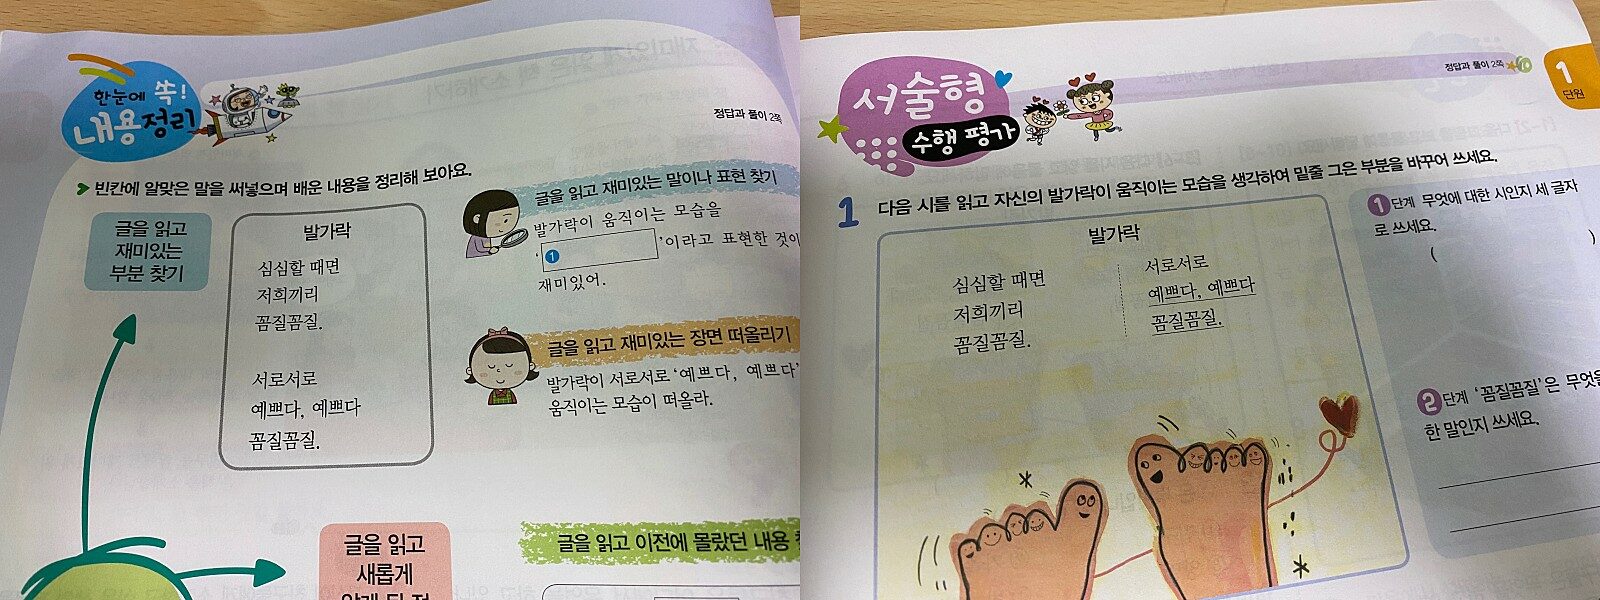 한눈에 쏙!
내용정리
정답과 풀이 2쪽
빈칸에 알맞은 말을 써넣으며 배운 내용을 정리해 보아요.
글을 읽고
재미있는
부분 찾기
발가락
심심할 때면
저희끼리
꼼질꼼질.
서로서로
예쁘다, 예쁘다
꼼질꼼질.
글을 읽고 재미있는 말이나 표현 찾기
발가락이 움직이는 모습을
'1 '이라고 표현한 것이
재미있어.
글을 읽고 재미있는 장면 떠올리기
발가락이 서로서로 '예쁘다, 예쁘다'
움직이는 모습이 떠올라.
글을 읽고
새롭게
알게 된 점
글을 읽고 이전에 몰랐던 내용
서술형
수행 평가
정답과 풀이 2쪽
1
단원
1 다음 시를 읽고 자신의 발가락이 움직이는 모습을 생각하여 밑줄 그은 부분을 바꾸어 쓰세요.
발가락
심심할 때면
저희끼리
꼼질꼼질.
서로서로
예쁘다, 예쁘다
꼼질꼼질.
1단계 무엇에 대한 시인지 세 글자
로 쓰세요.
( )
2단계 '꼼질꼼질'은 무엇을
한 말인지 쓰세요.